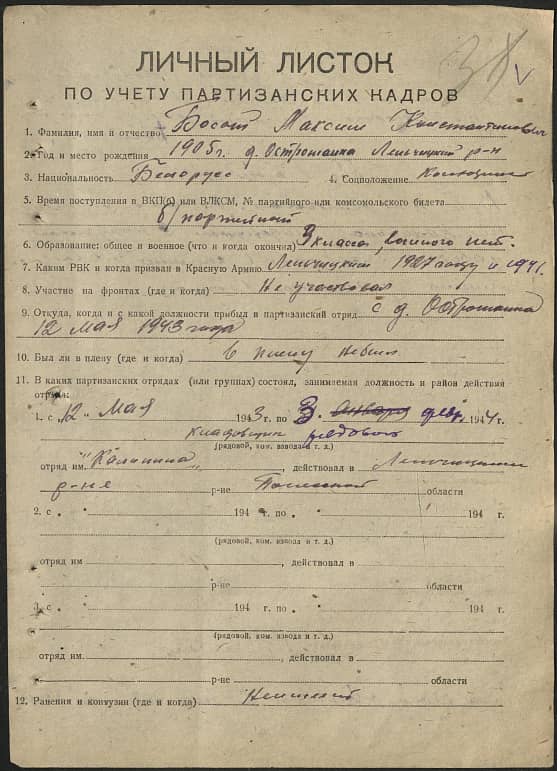 38 V
ЛИЧНЫЙ ЛИСТОК
ПО УЧЕТУ ПАРТИЗАНСКИХ КАДРОВ
1. Фамилия, имя и отчество Босот Максим Константинович
2. Год и место рождения 1905г. д. Острожанка Лельчицкий р-н
3. Национальность Белорус 4. Соцположение
5. Время поступления в ВКП(б) или ВЛКСМ, № партийного или комсомольского билета
б/партейный
6. Образование: общее и военное (что и когда окончил) 3 класса, военного нет.
7. Каким РВК и когда призван в Красную Армию Лельчицким 1927 году и 1941.
8. Участие на фронтах (где и когда) Не участвовал
9. Откуда, когда и с какой должности прибыл в партизанский отряд с д. Острожанка
12 мая 1943 года
10. Был ли в плену (где и когда) в плену не был
11. В каких партизанских отрядах (или группах) состоял, занимаемая должность и район действия
отряда:
1. с „12" мая 1943 г. по „3" январа февр. 1944 г.
кладовщик рядовой
(рядовой, ком. взвода и т. д.)
отряд им. "Калинина", действовал в Лельчицким
р-не р-не Полесской области
2. с „ 194 г. по „ 194 г.
(рядовой, ком. взвода и т. д.)
отряд им , действовал в
р-не области
3. с „ 194 г. по „ 194 г.
(рядовой, ком. взвода и т. д.)
отряд им. , действовал в
р-не области
12. Ранения и контузии (где и когда)